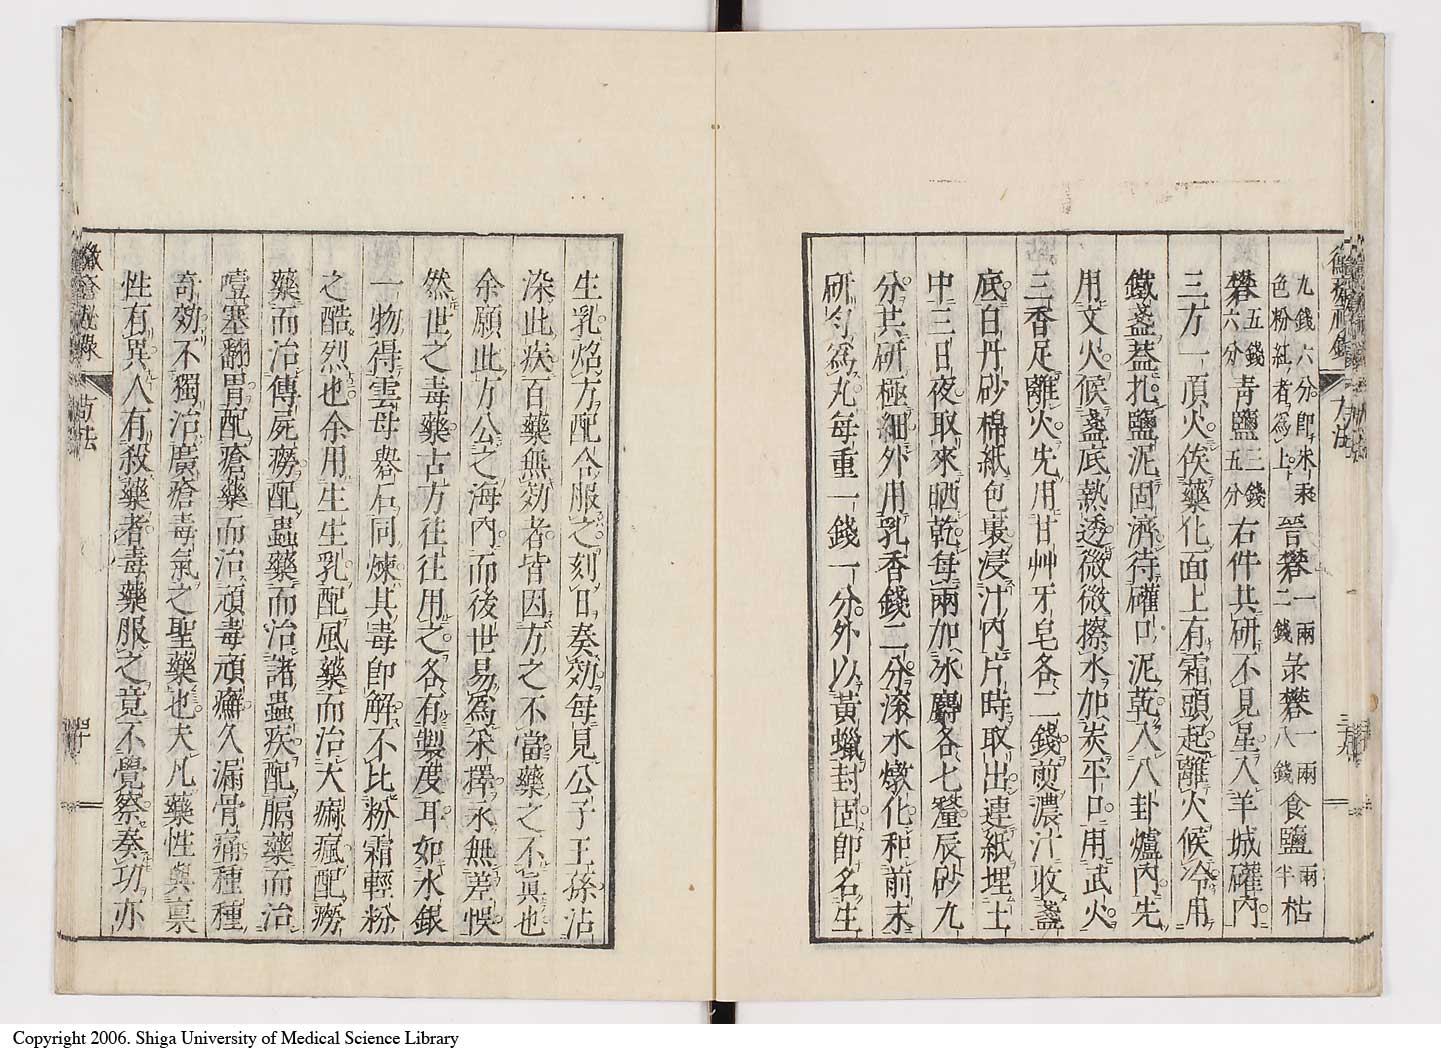 九錢六分即朱乘
色粉紅者爲上
晉礬一兩二錢
彔礬一兩八錢
食鹽一兩半
枯
礬五錢六分
靑鹽三錢五分
右件共研不見星入羊城礶內
三方一頂火俟藥化面上有霜頭起離火候冷用
鐵盞葢扎鹽泥固濟待礶口泥乾入八卦爐內先
用文火候盞底熱透微微擦水加炭平口用武火
三香足離火先用甘艸牙皂各二錢煎濃汁收盞
底白丹砂棉紙包裹浸汁內片時取出連紙埋土
中三日夜取來晒乾每兩加冰麝各七釐辰砂九
分共研極細外用乳香錢二分滚水燉化和前末
研勻爲丸每重一錢一分外以黃蠟封固卽名生
方法
生乳焰方配合服之刻日奏効每見公子王孫沾
染此疾百藥無効者皆因方之不當藥之不眞也
余願此方公之海內而後世易爲采擇永無差悞
然世之毒藥古方往往用之各有製度耳如水銀
一物得雲母礜石同煉其毒卽解不比粉霜輕粉
之酷烈也余用生生乳配風藥而治大痳瘋配癆
藥而治傳屍癆配蟲藥而治諸蟲疾配膈藥而治
噎塞翻胃配瘡藥而治頑毒頑癬久漏骨痛種種
奇効不獨治廣瘡毒氣之聖藥也夫凡藥性與稟
性有異人有殺藥者毒藥服之竟不覺察奏功亦
黴瘡秘錄
方法
四十